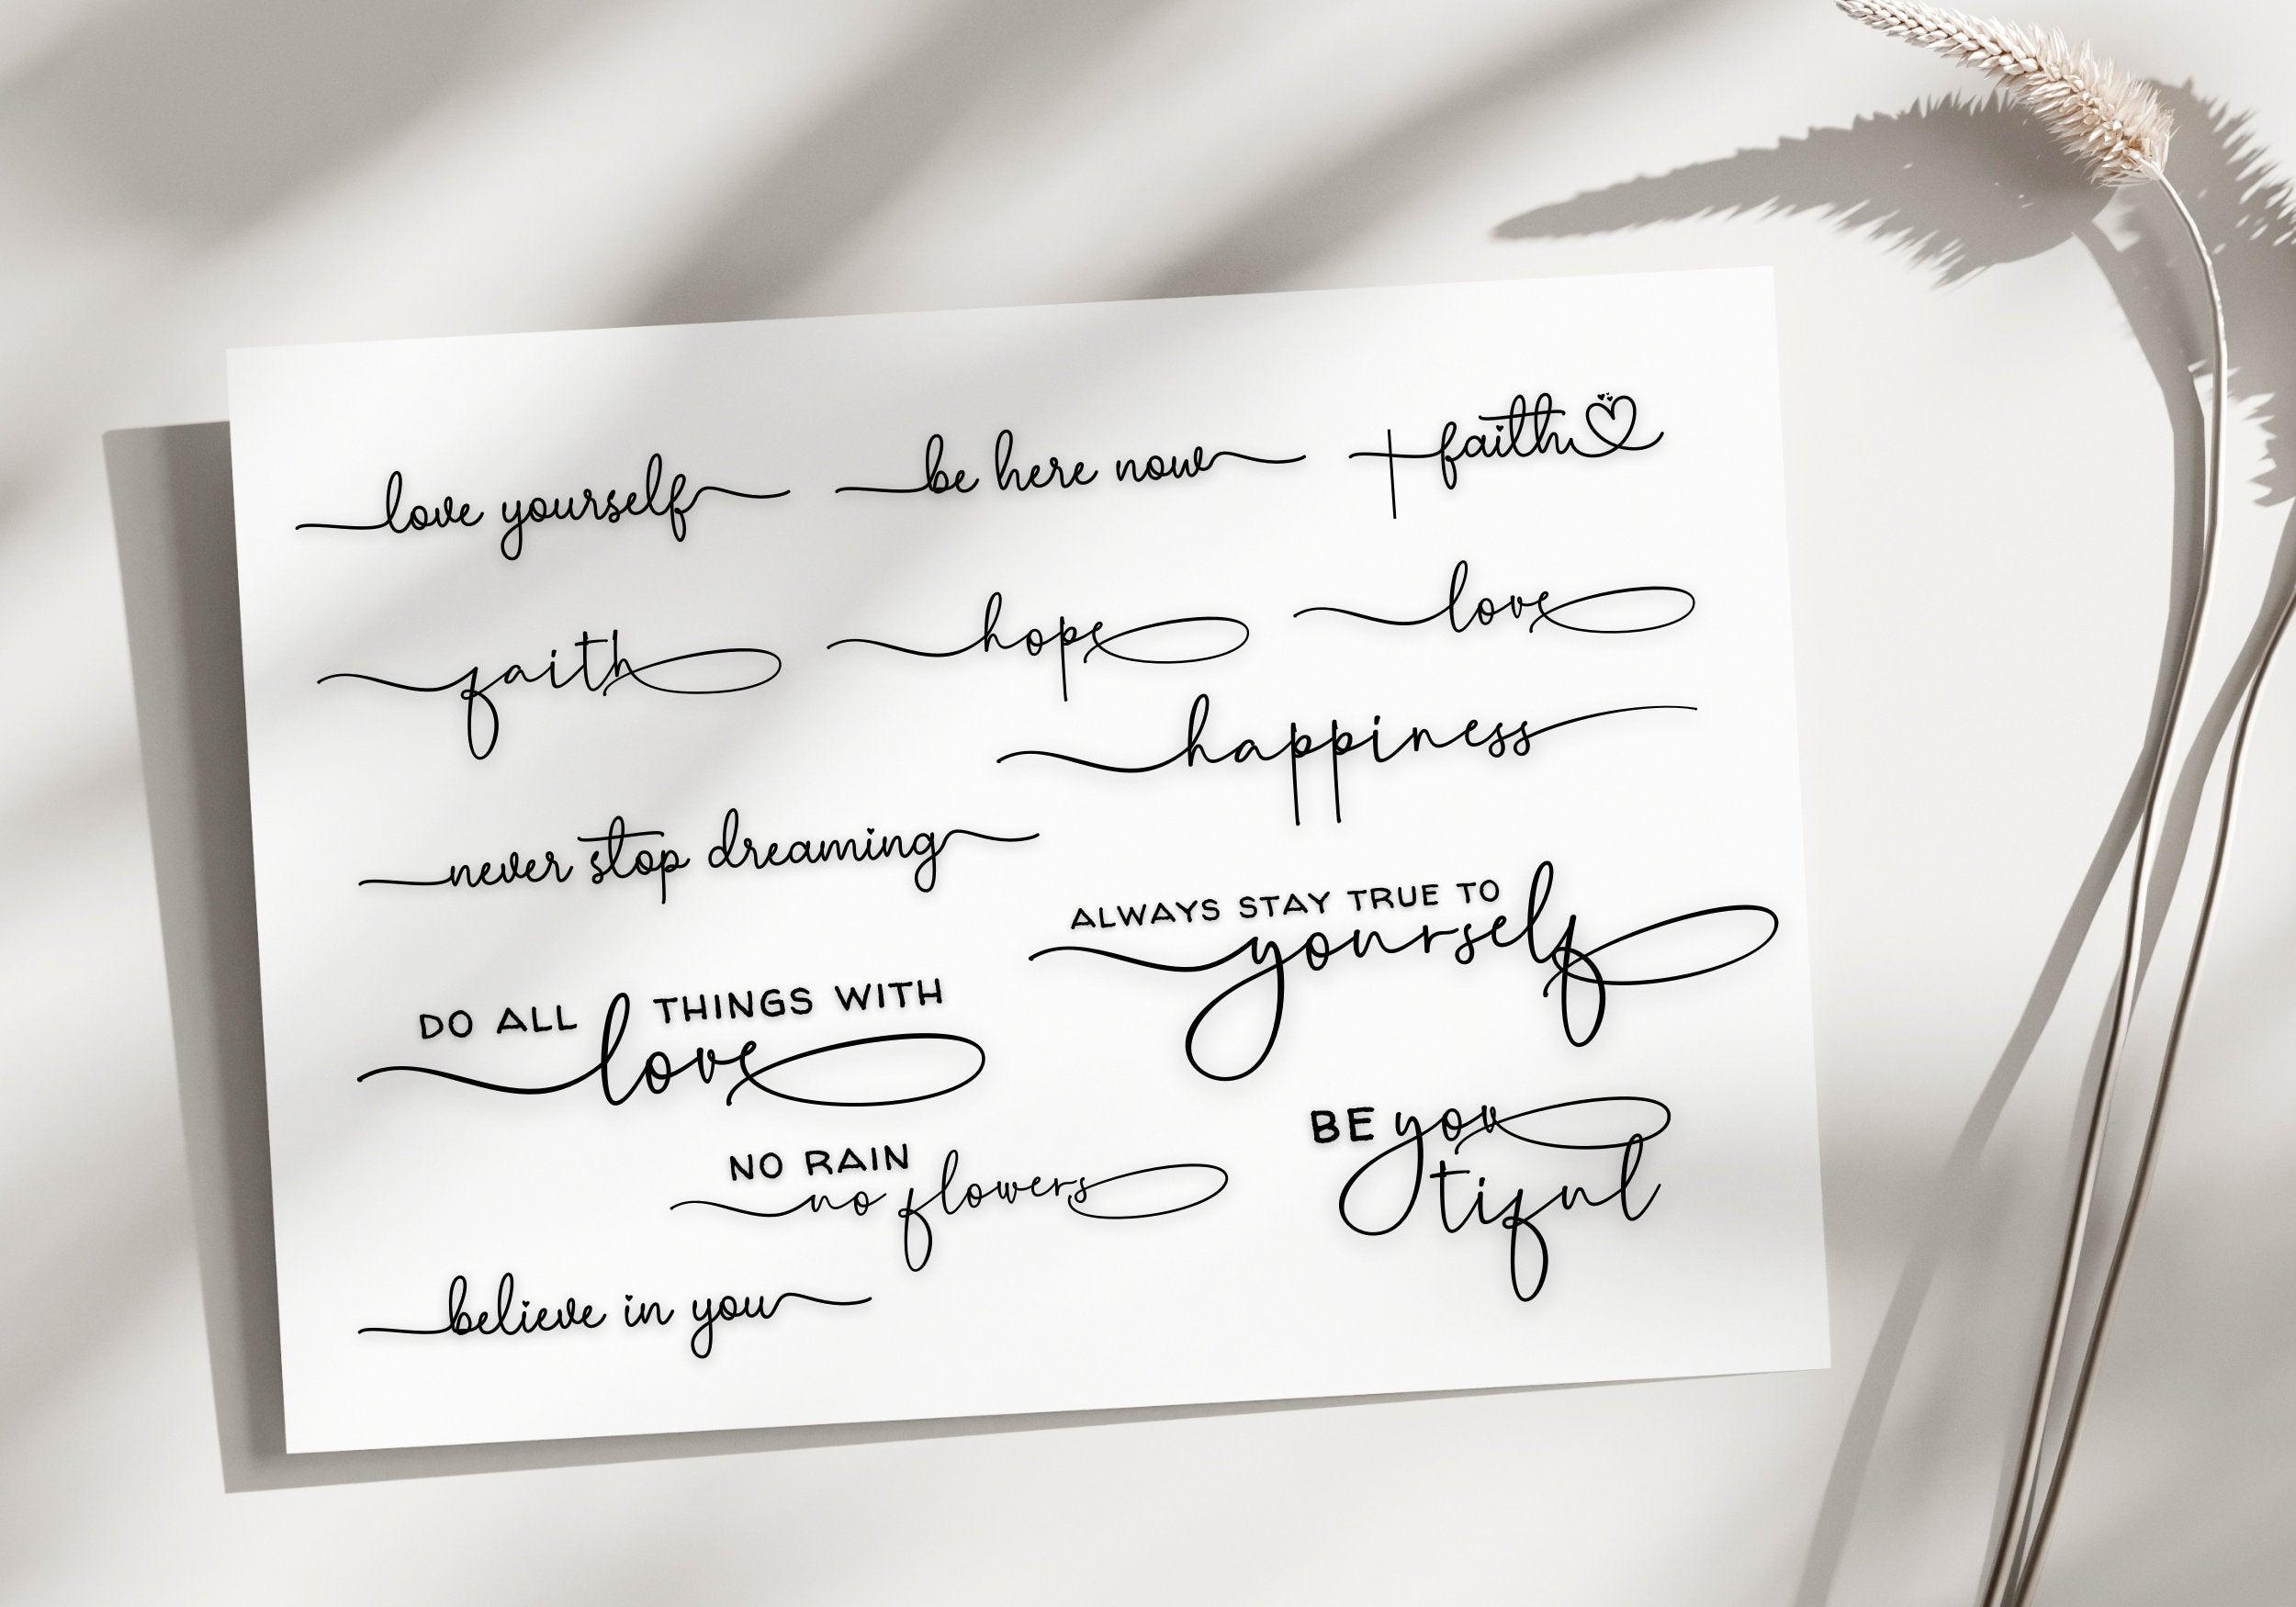 love yourself
be here now
faith
faith
hope
love
happiness
never stop dreaming
ALWAYS STAY TRUE TO
yourself
DO ALL THINGS WITH
love
NO RAIN
no flowers
BE you
tiful
believe in you